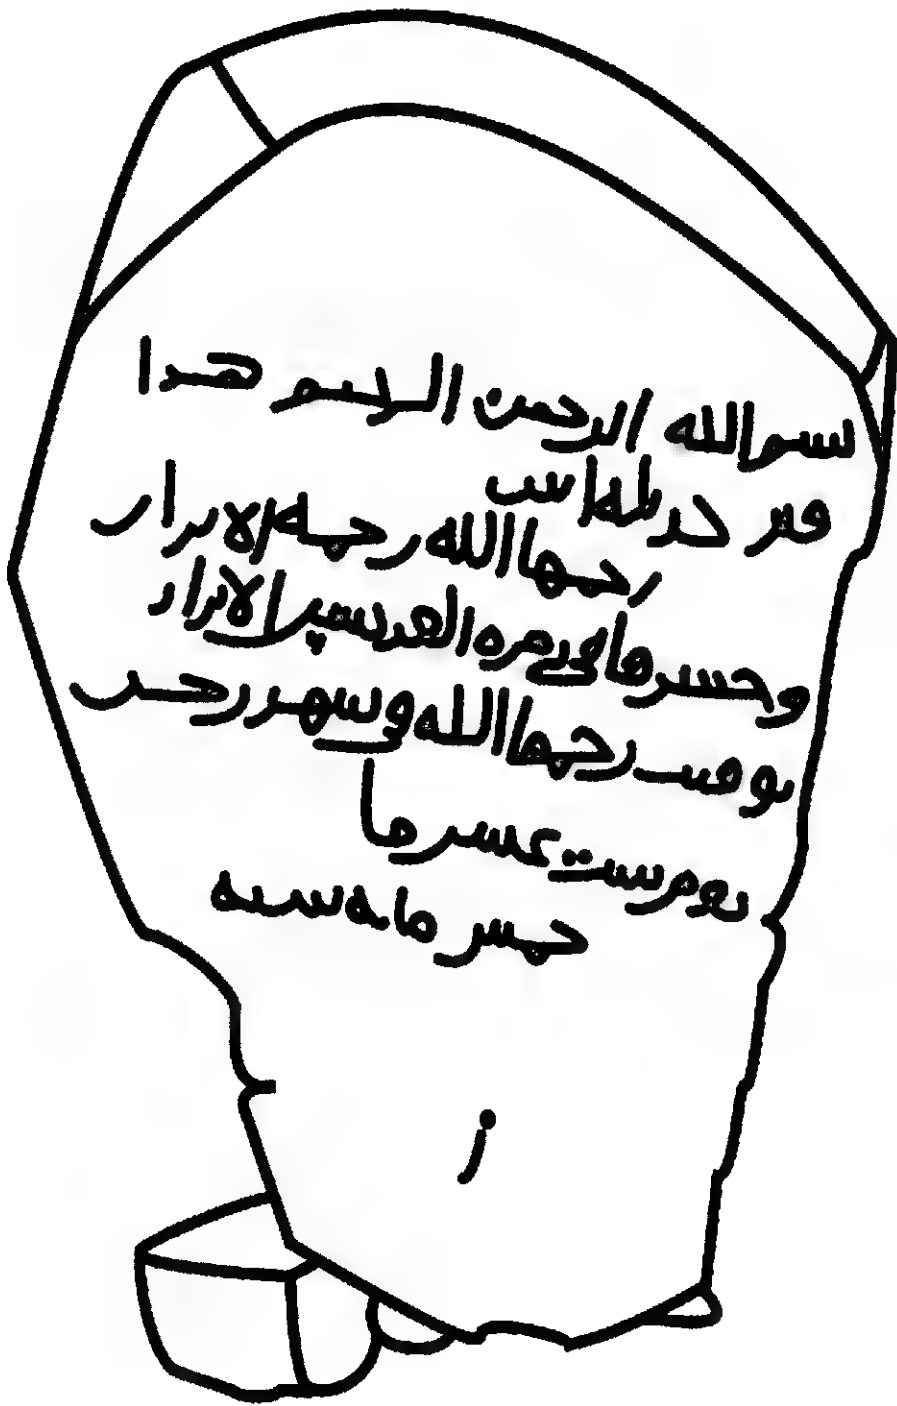 بسم الله الرحمن الرحيم هدا
قبر
رحمها الله رحمه الابرار
وحسرها في زمره الابرار
توفيت رحمها الله في سهر رجب
يوم ست عسر
خمس مايه سنه